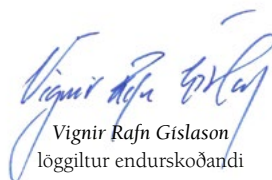 Vignir Rafn Gíslason
Vignir Rafn Gíslason
löggiltur endurskoðandi